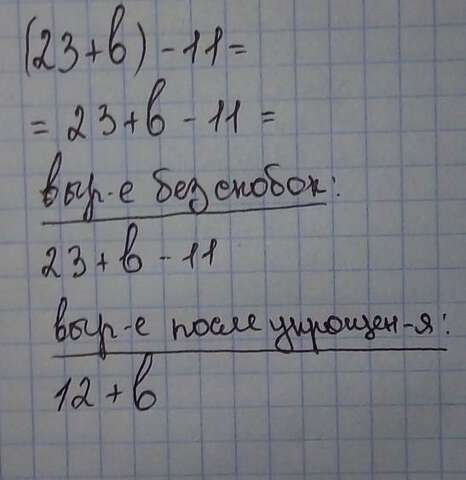 (23+b)-11=
= 23+b-11 =
выр-е без скобок:
23+b-11
выр-е после упрощен-я:
12+b